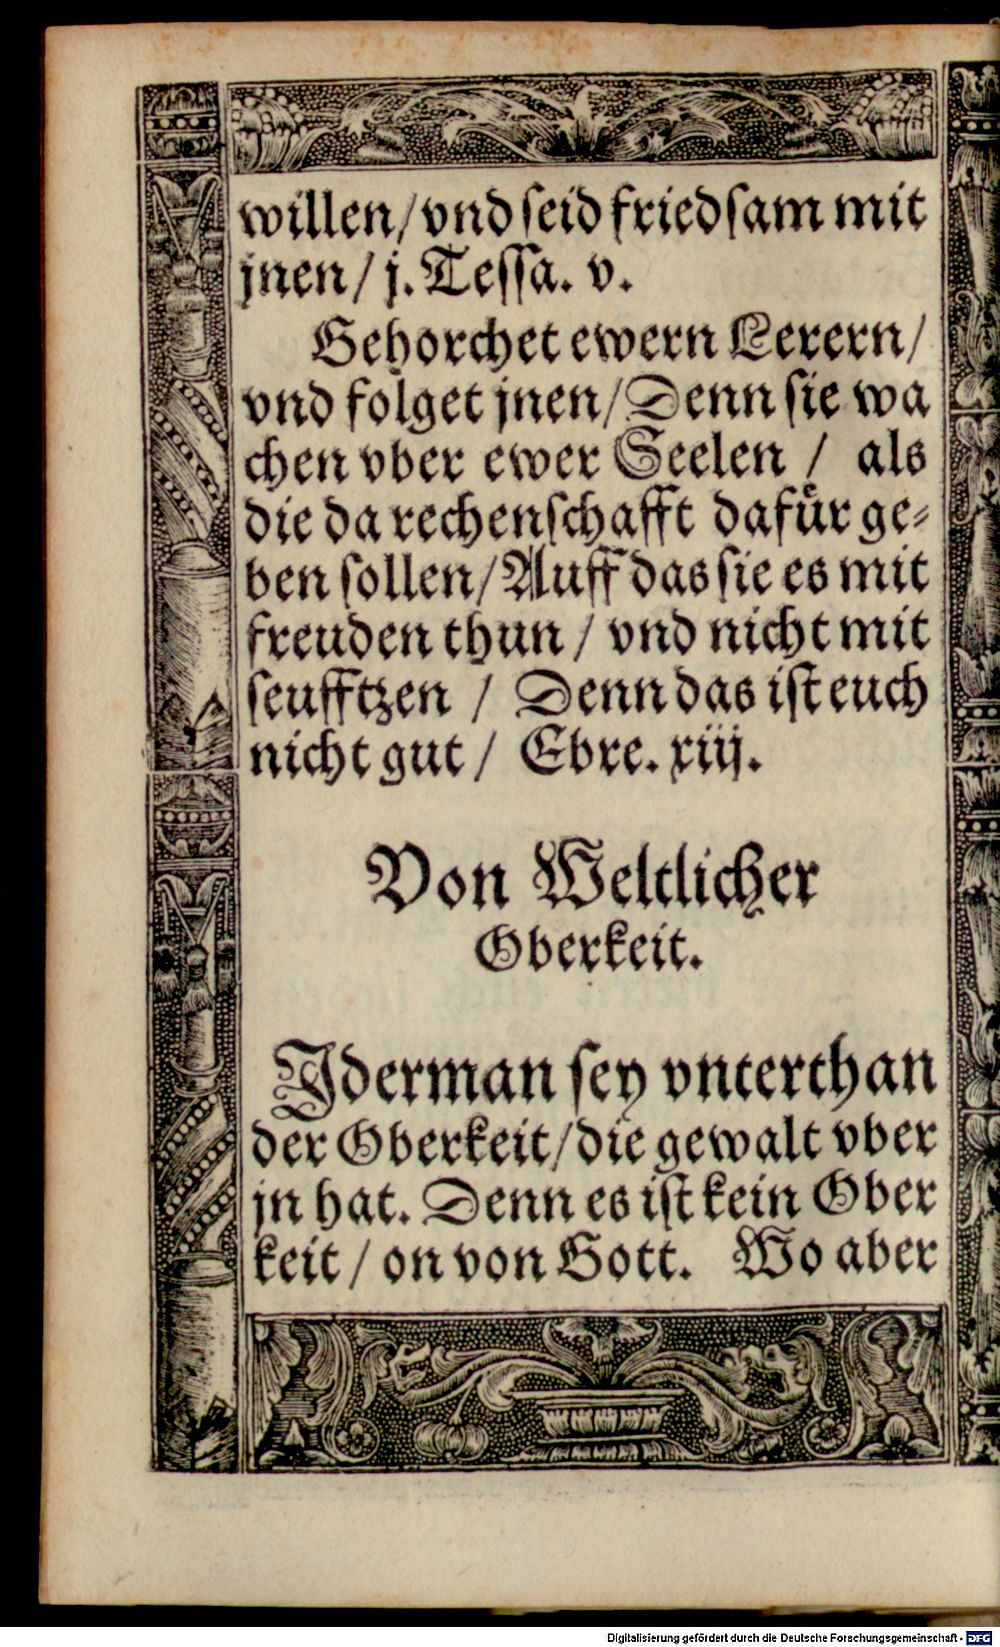 willen/vnd ſeid friedſam mit
jnen/ j. Teſſa. v.
Gehorchet ewern Lerern/
vnd folget jnen/Denn ſie wa
chen vber ewer Seelen / als
die da rechenſchafft dafuͤr ge⸗
ben ſollen/Auff das ſie es mit
freuden thun / vnd nicht mit
ſeufftzen / Denn das iſt euch
nicht gut / Ebre. xiij.
Von Weltlicher
Oberkeit.
Jderman ſey vnterthan
der Oberkeit/die gewalt vber
jn hat. Denn es iſt kein Ober
keit / on von Gott. Wo aber
Digitalisierung gefördert durch die Deutsche Forschungsgemeinschaft - DFG